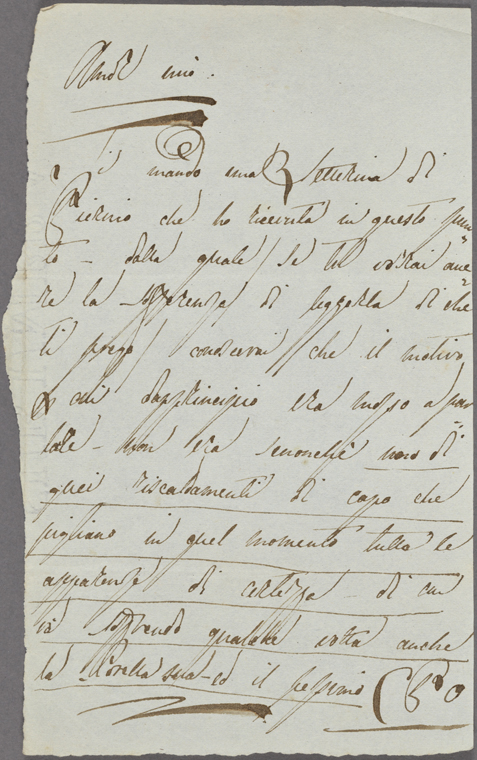 Amor mio.
Ti mando una Letterina di
Pierino che ho ricevuta in questo pun=
to - dalla quale / se tu vorrai ave=
re la sofferenza di leggerla di che
ti prego / conoscerai che il motivo
cui dapprincipio era mosso a par=
tare - non era senonchè uno di
quei riscaldamenti di capo che
pigliano in quel momento tutta le
apparenze di certezza - di cui
io sorprendo qualche volta anche
la Sorella sua - ed il pessimo